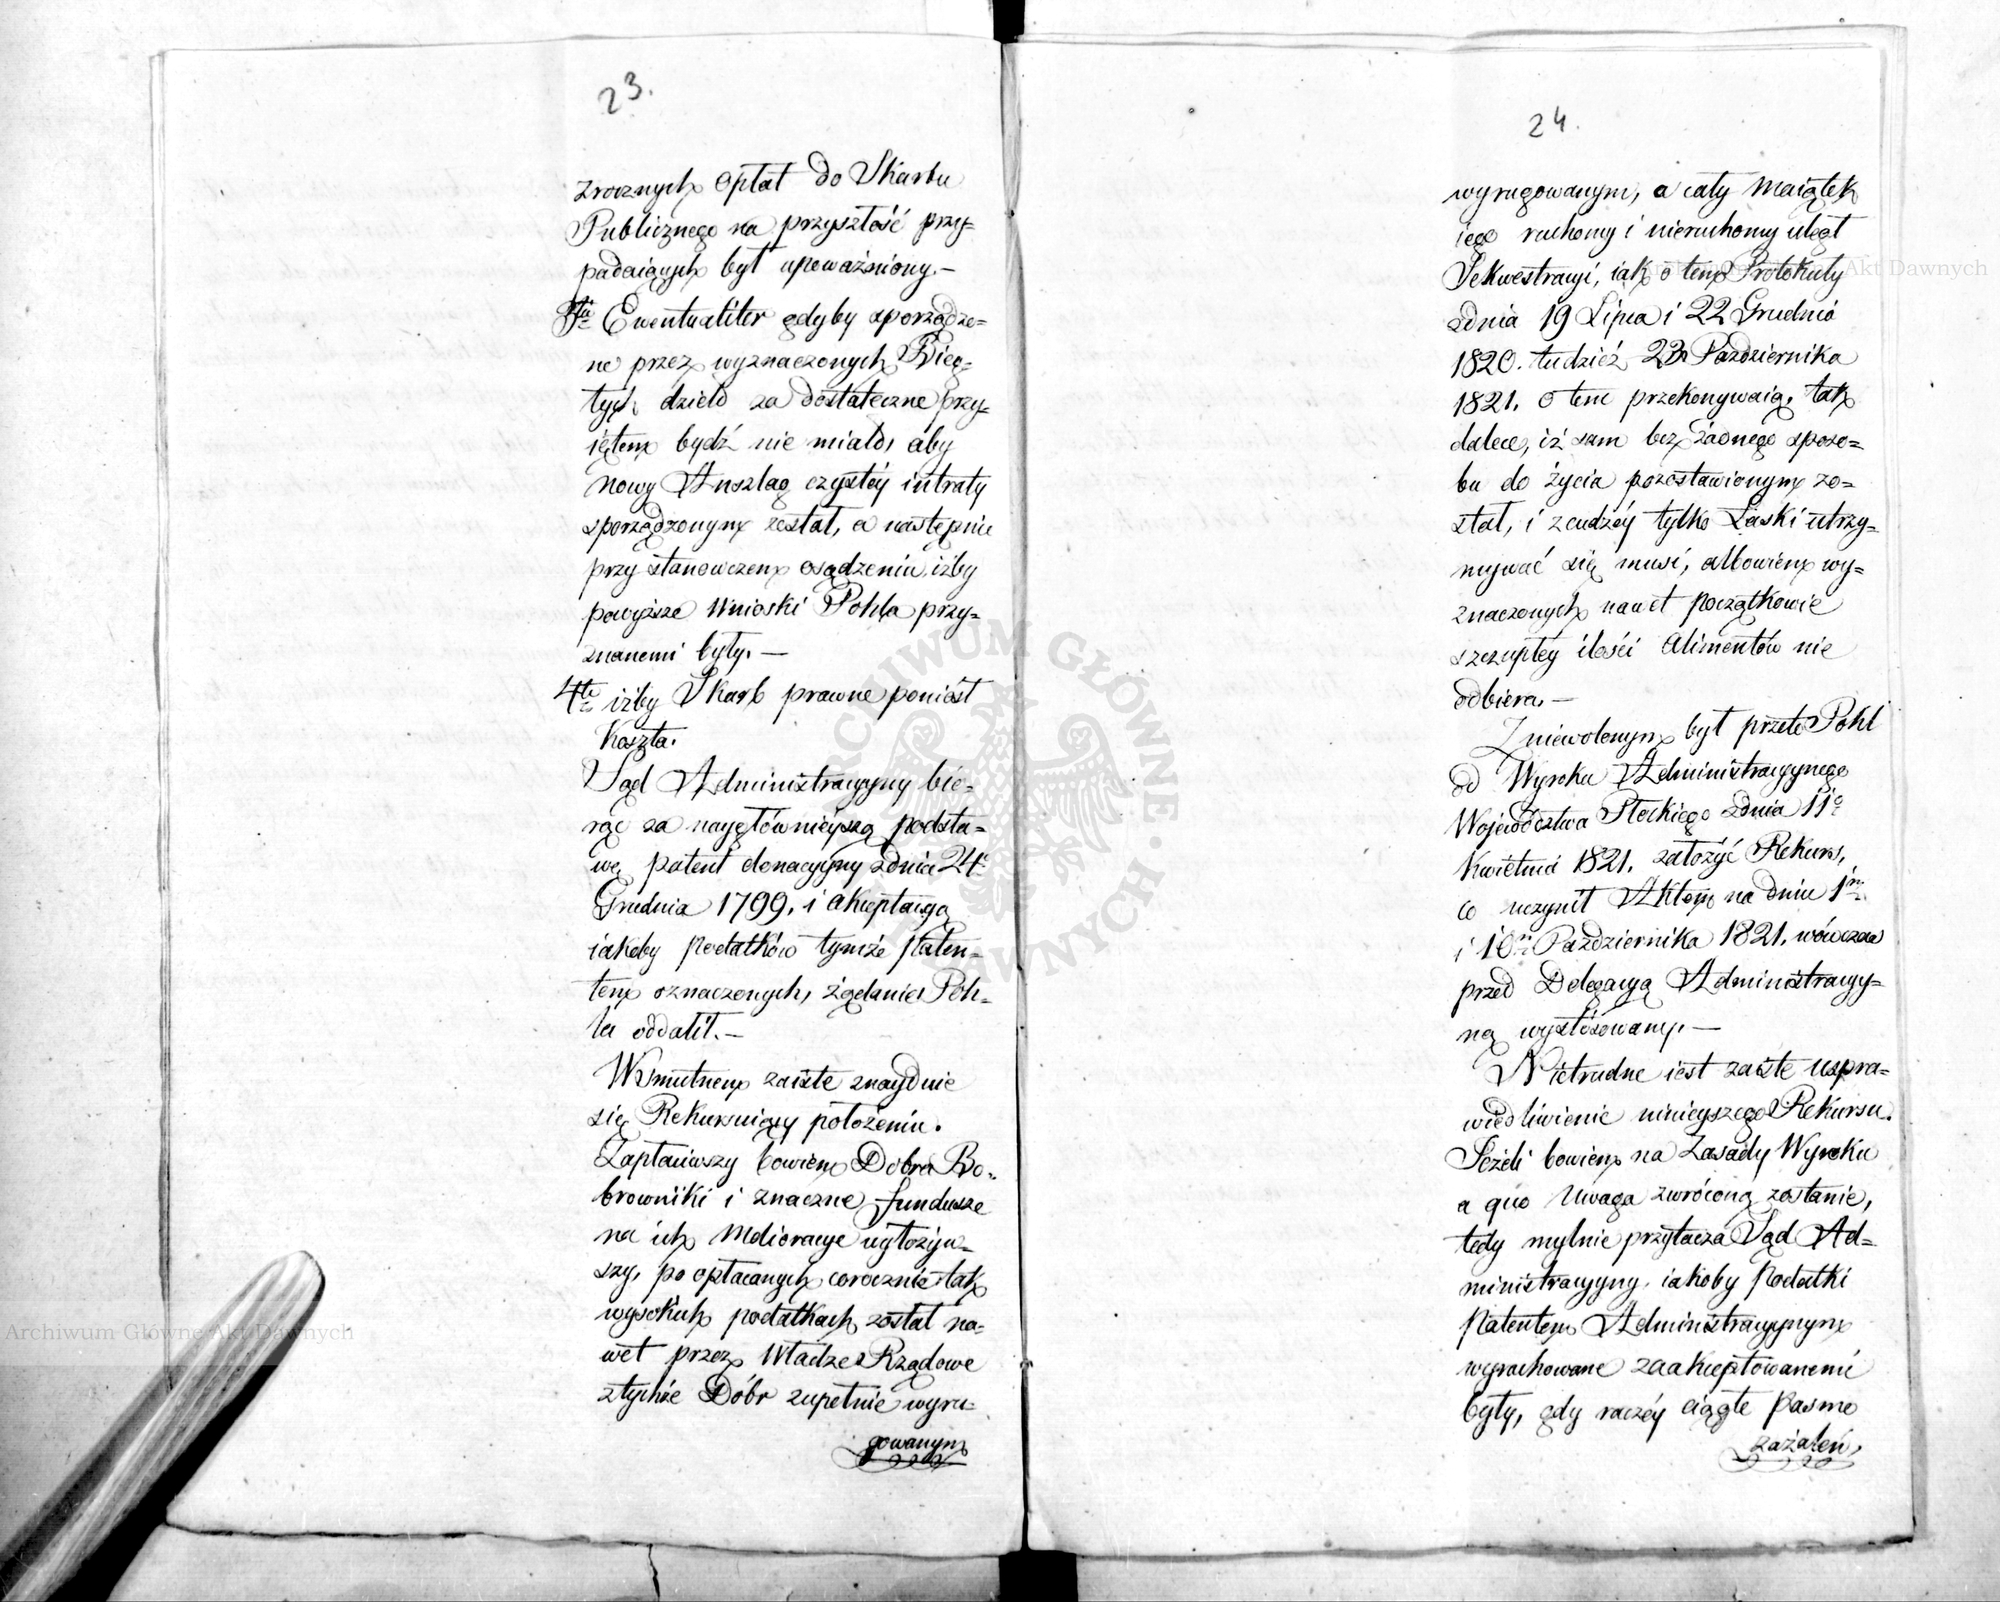 23.
zrocznych Opłat do Skarbu
Publicznego na przyszłość przy-
padaiących był upoważniony.—
3tio Ewentualiter gdyby sporządzo-
ne przez wyznaczonych Bieg-
łych dzieło za dostateczne przy-
iętem bydź nie miało, aby
nowy Anszlag czystéy intraty
sporządzonym został, a następnie
przy stanowczem osądzeniu, iżby
powyższe Wnioski Pohla przy-
znanemi były.—
4to iżby Skarb prawne poniósł
Koszta.
Sąd Administracyyny bio-
rąc za naygłównieyszą podsta-
wę, patent donacyyny zdnia 24o
Grudnia 1799. i akceptacyą
iakoby Podatków tymże Paten-
tem oznaczonych, żądanie Poh-
la oddalił.—
W smutnem zaiste znayduie
się Rekursuiący położeniu.
Zapłaciwszy bowiem Dobra Bo-
browniki i znaczne fundusze
na ich Melioracye wyłożyw-
szy, po opłacanych corocznie tak
wysokich podatkach, został na-
wet przez Władze Rządowe
ztychże Dóbr zupełnie wyru-
gowanym
24.
wyrugowanym, a cały Maiątek
iego ruchomy i nieruchomy uległ
Sekwestracyi, iak o tem Protokuły
zdnia 19 Lipca i 22 Grudnia
1820. tudzież 23 Października
1821. o tem przekonywaią, tak
dalece, iż sam bez żadnego sposo-
bu do życia pozostawionym zo-
stał, i z cudzéy tylko Łaski utrzy-
mywać się musi, albowiem wy-
znaczonych nawet początkowie
szczupłey ilości Alimentów nie
odbiera.—
Zniewolonym był przeto Pohl
od Wyroku Administracyynego
Województwa Płockiego zdnia 11o
Kwietnia 1821. założyć Rekurs,
co uczynił Aktem na dniu 1m
i 10m Października 1821. wówczas
przed Delegacyą Administracyy-
ną wystósowany.—
Nietrudne iest zaiste uspra-
wiedliwienie ninieyszego Rekursu.
Jeżeli bowiem na Zasady Wyroku
a quo Uwaga zwróconą zostanie,
tedy mylnie przytacza Sąd Ad-
ministracyyny, iakoby Podatki
Patentem Administracyynym
wyrachowane zaakceptowanemi
były, gdy raczéy ciągłe Pasmo
zażaleń,
Archiwum Główne Akt Dawnych
ARCHIWUM GŁÓWNE AKT DAWNYCH
Archiwum Główne Akt Dawnych